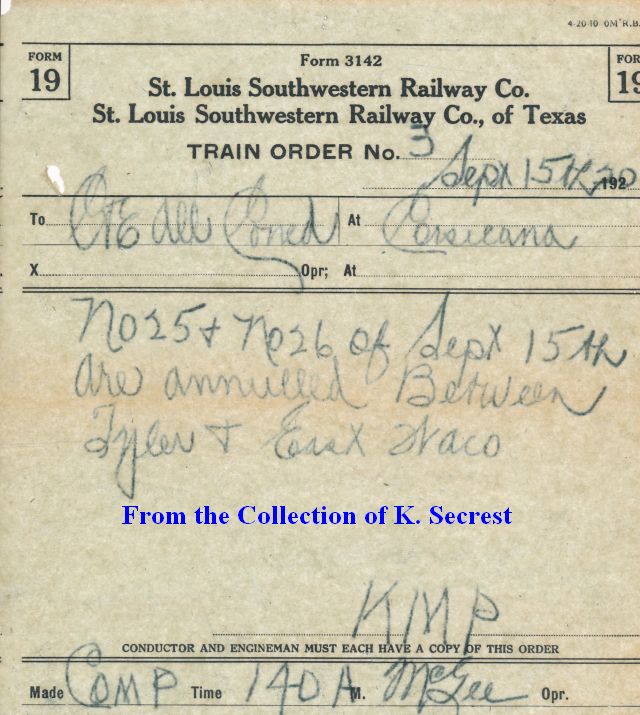 4-20-10 0M R.B.
FORM 19
Form 3142
FOR 19
St. Louis Southwestern Railway Co.
St. Louis Southwestern Railway Co., of Texas
TRAIN ORDER No. 3
Sept 15th, 1920
To C&E All Concd At Corsicana
X Opr; At
No 25 & No 26 of Sept 15th
are annulled Between
Tyler & East Waco
From the Collection of K. Secrest
KMP
CONDUCTOR AND ENGINEMAN MUST EACH HAVE A COPY OF THIS ORDER
Made Comp Time 140 A M. McGee Opr.